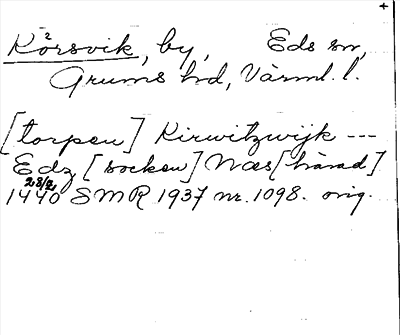 Körsvik, by, Eds sn,
Grums hd, Värml. l.
[torpen] Kirwitzwijk ---
Edz [socken] Næs [härad]
28/2
1440 SMR 1937 nr. 1098. orig.